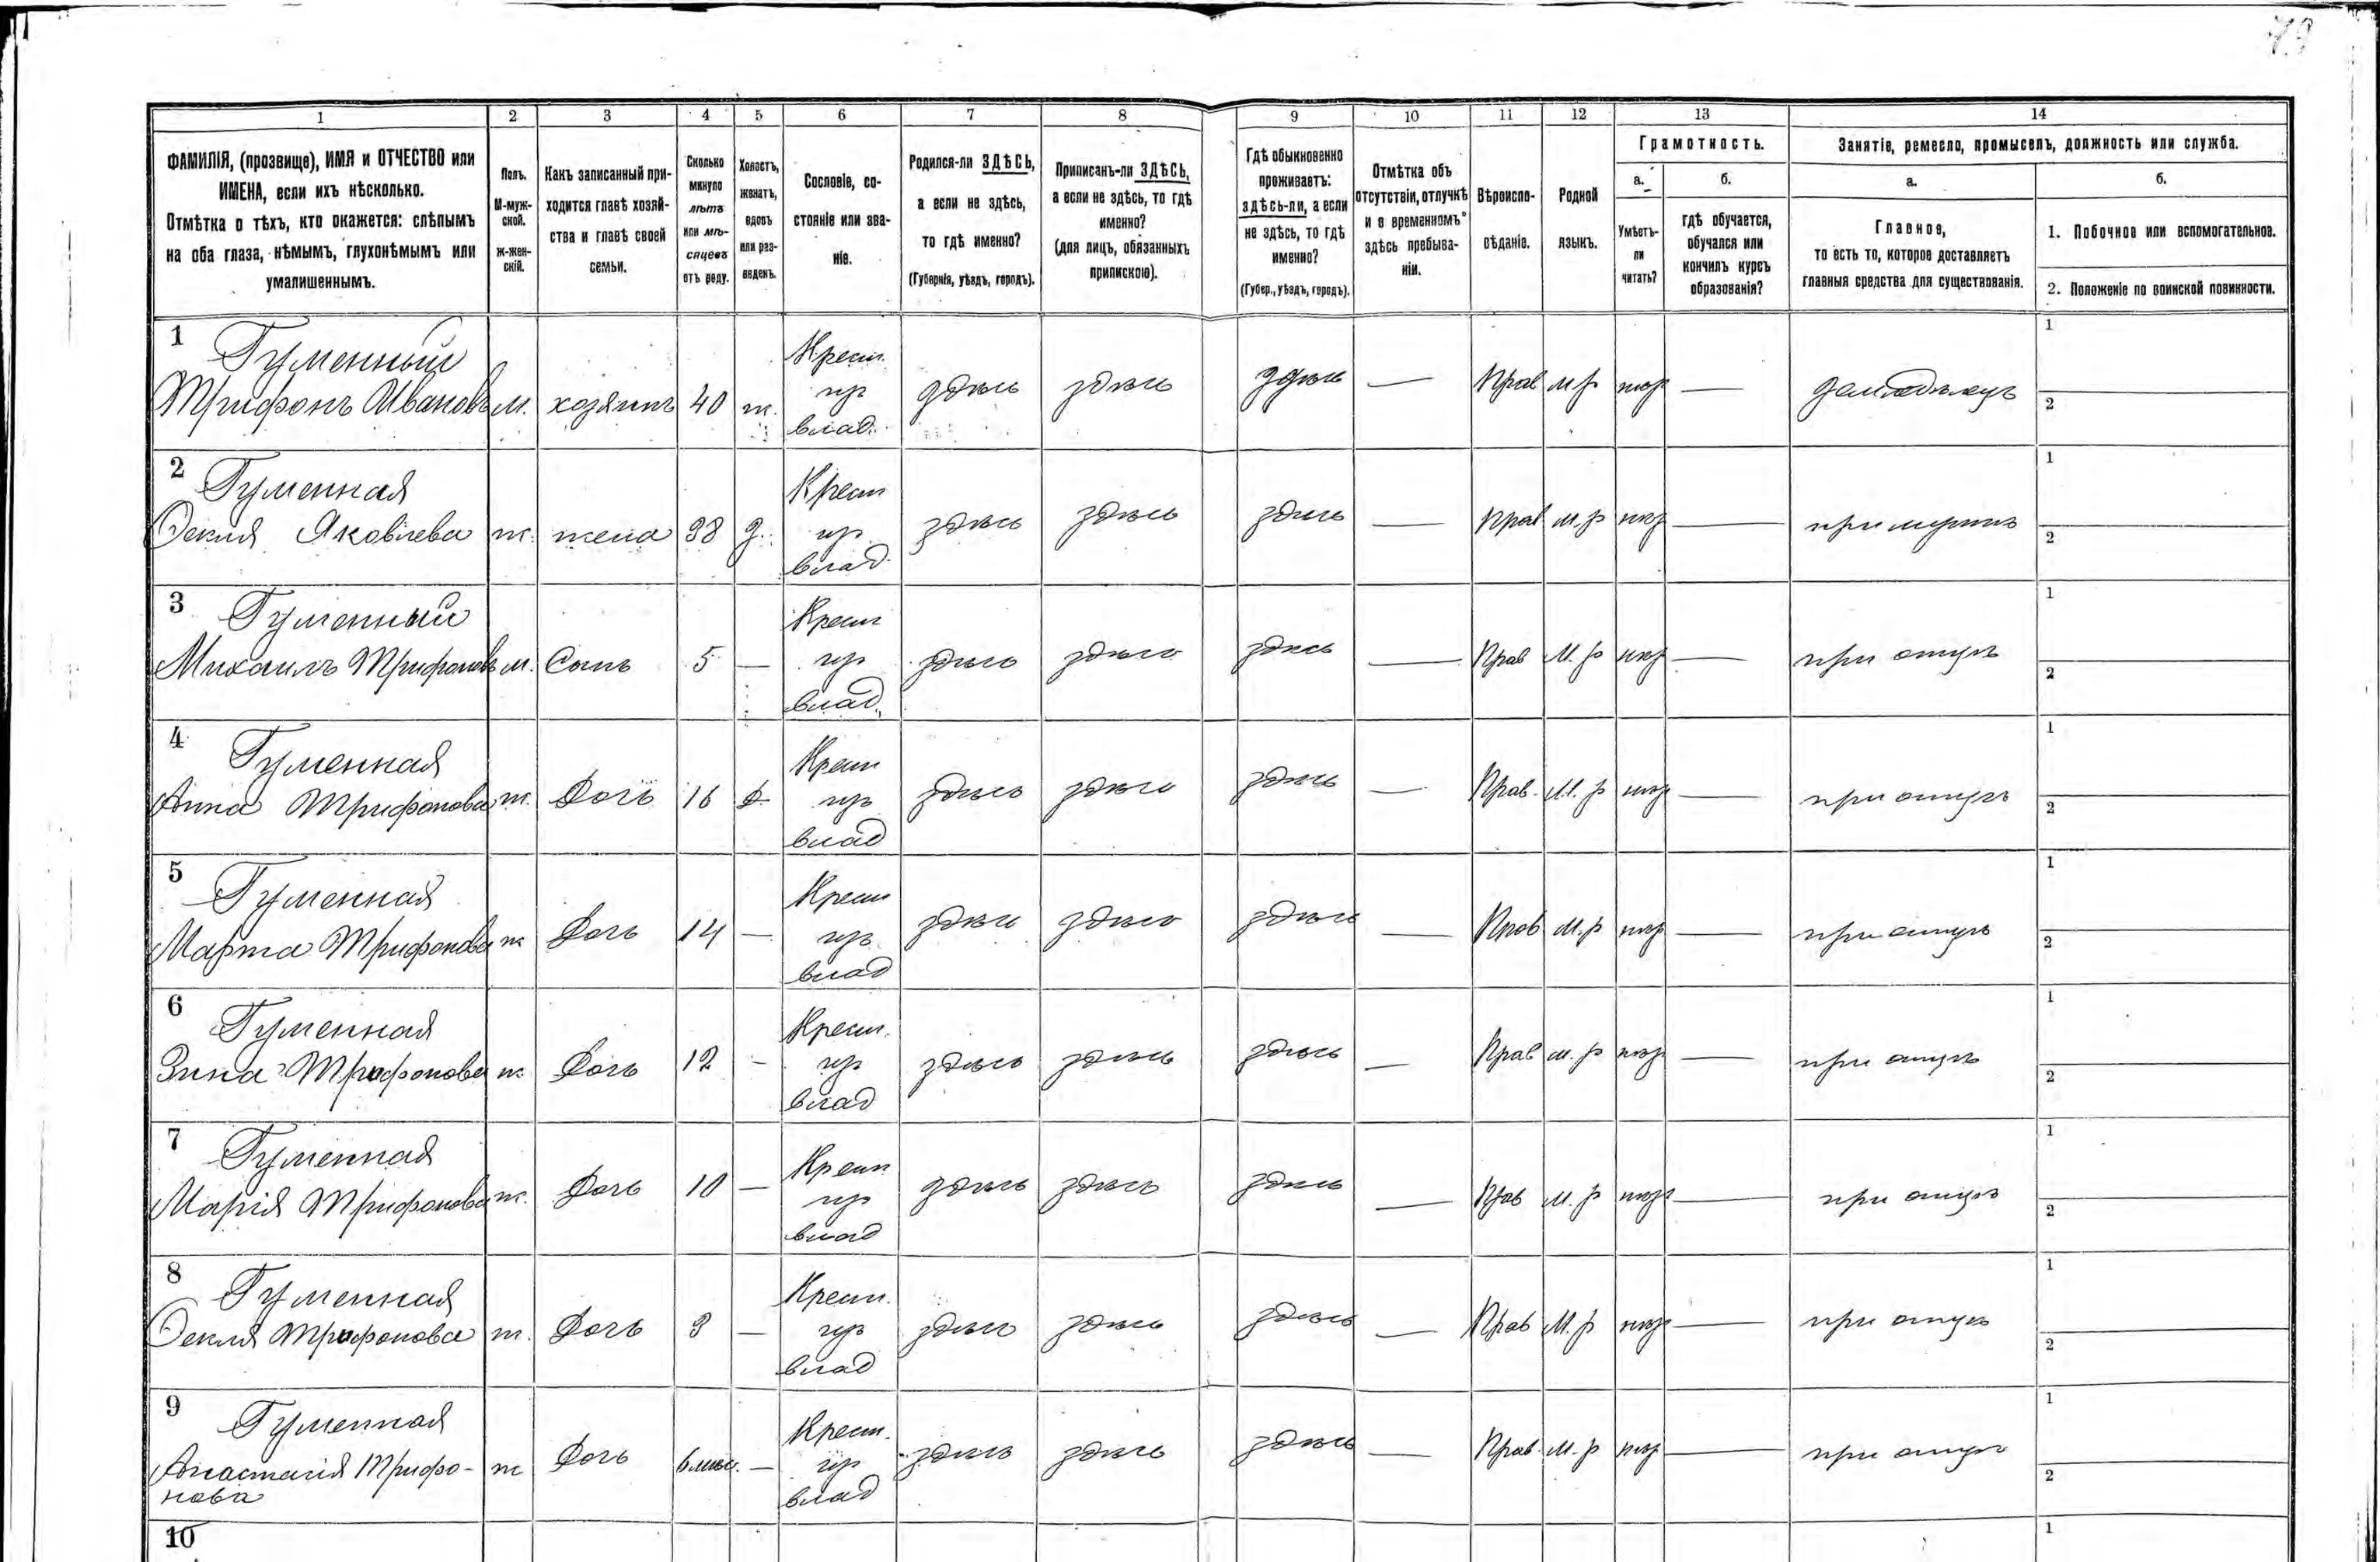 79
1 2 3 4 5 6 7 8 9 10 11 12 13 14
ФАМИЛІЯ, (прозвище), ИМЯ и ОТЧЕСТВО или
ИМЕНА, если ихъ нѣсколько.
Отмѣтка о тѣхъ, кто окажется: слѣпымъ
на оба глаза, нѣмымъ, глухонѣмымъ или
умалишеннымъ.
Полъ.
М-муж-
ской.
Ж-жен-
скій.
Какъ записанный при-
ходится главѣ хозяй-
ства и главѣ своей
семьи.
Сколько
минуло
лѣтъ
или мѣ-
сяцевъ
отъ роду.
Холостъ,
женатъ,
вдовъ
или раз-
веденъ.
Сословіе, со-
стояніе или зва-
ніе.
Родился-ли ЗДѢСЬ,
а если не здѣсь,
то гдѣ именно?
(Губернія, уѣздъ, городъ).
Приписанъ-ли ЗДѢСЬ,
а если не здѣсь, то гдѣ
именно?
(для лицъ, обязанныхъ
припискою).
Гдѣ обыкновенно
проживаетъ:
здѣсь-ли, а если
не здѣсь, то гдѣ
именно?
(Губер., уѣздъ, городъ).
Отмѣтка объ
отсутствіи, отлучкѣ
и о временномъ
здѣсь пребыва-
ніи.
Вѣроиспо-
вѣданіе.
Родной
языкъ.
Грамотность.
а.
Умѣетъ-
ли
читать?
б.
гдѣ обучается,
обучался или
кончилъ курсъ
образованія?
Занятіе, ремесло, промыселъ, должность или служба.
а.
Главное,
то есть то, которое доставляетъ
главныя средства для существованія.
б.
1. Побочное или вспомогательное.
2. Положеніе по воинской повинности.
1 Гуменный Крест. 1
Трифонъ Ивановъ м. хозяинъ 40 ж. здѣсь здѣсь здѣсь — Прав м р — земледѣлецъ 2
влад.
2 Гуменная Крест 1
Ѳекля Яковлева ж. жена 38 з. здѣсь здѣсь здѣсь — Прав м. р — при мужѣ 2
влад.
3 Гуменный Крест 1
Михаилъ Трифоновъ м. Сынъ 5 — здѣсь здѣсь здѣсь — Прав М. р — при отцѣ 2
влад.
4 Гуменная Крест 1
Анна Трифонова ж. Дочь 16 здѣсь здѣсь здѣсь — Прав. М. р — при отцѣ 2
влад
5 Гуменная Крест 1
Марта Трифонова ж Дочь 14 — здѣсь здѣсь здѣсь — Прав М. р — при отцѣ 2
влад
6 Гуменная Крест. 1
Зина Трифонова ж Дочь 12 — здѣсь здѣсь здѣсь — Прав м. р — при отцѣ 2
влад
7 Гуменная Крест 1
Марія Трифонова ж. Дочь 10 — здѣсь здѣсь здѣсь — Прав м. р — при отцѣ 2
влад
8 Гуменная Крест. 1
Ѳекля Трифонова ж. Дочь 3 — здѣсь здѣсь здѣсь — Прав М. р — при отцѣ 2
влад
9 Гуменная Крест. 1
Анастасія Трифо- ж Дочь 6 мѣс. — здѣсь здѣсь здѣсь — Прав. м. р — при отцѣ 2
нова влад
10 1